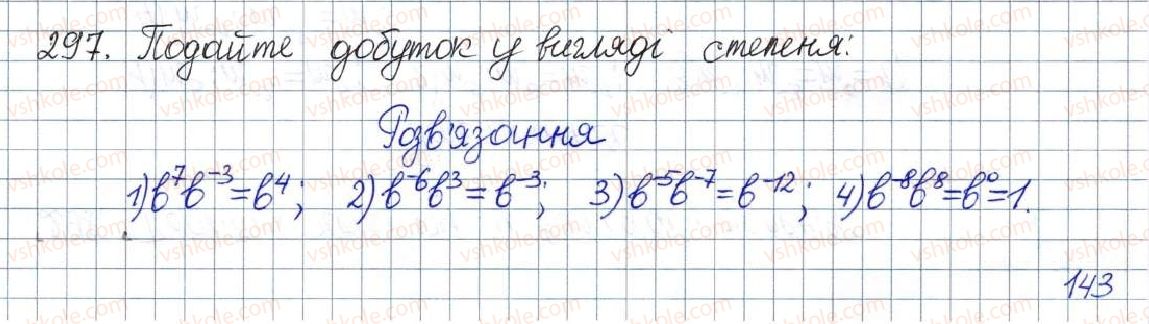 297. Подайте добуток у вигляді степеня:
Розв'язання
1) b⁷b⁻³=b⁴; 2) b⁻⁶b³=b⁻³; 3) b⁻⁵b⁻⁷=b⁻¹²; 4) b⁻⁸b⁸=b⁰=1.
143